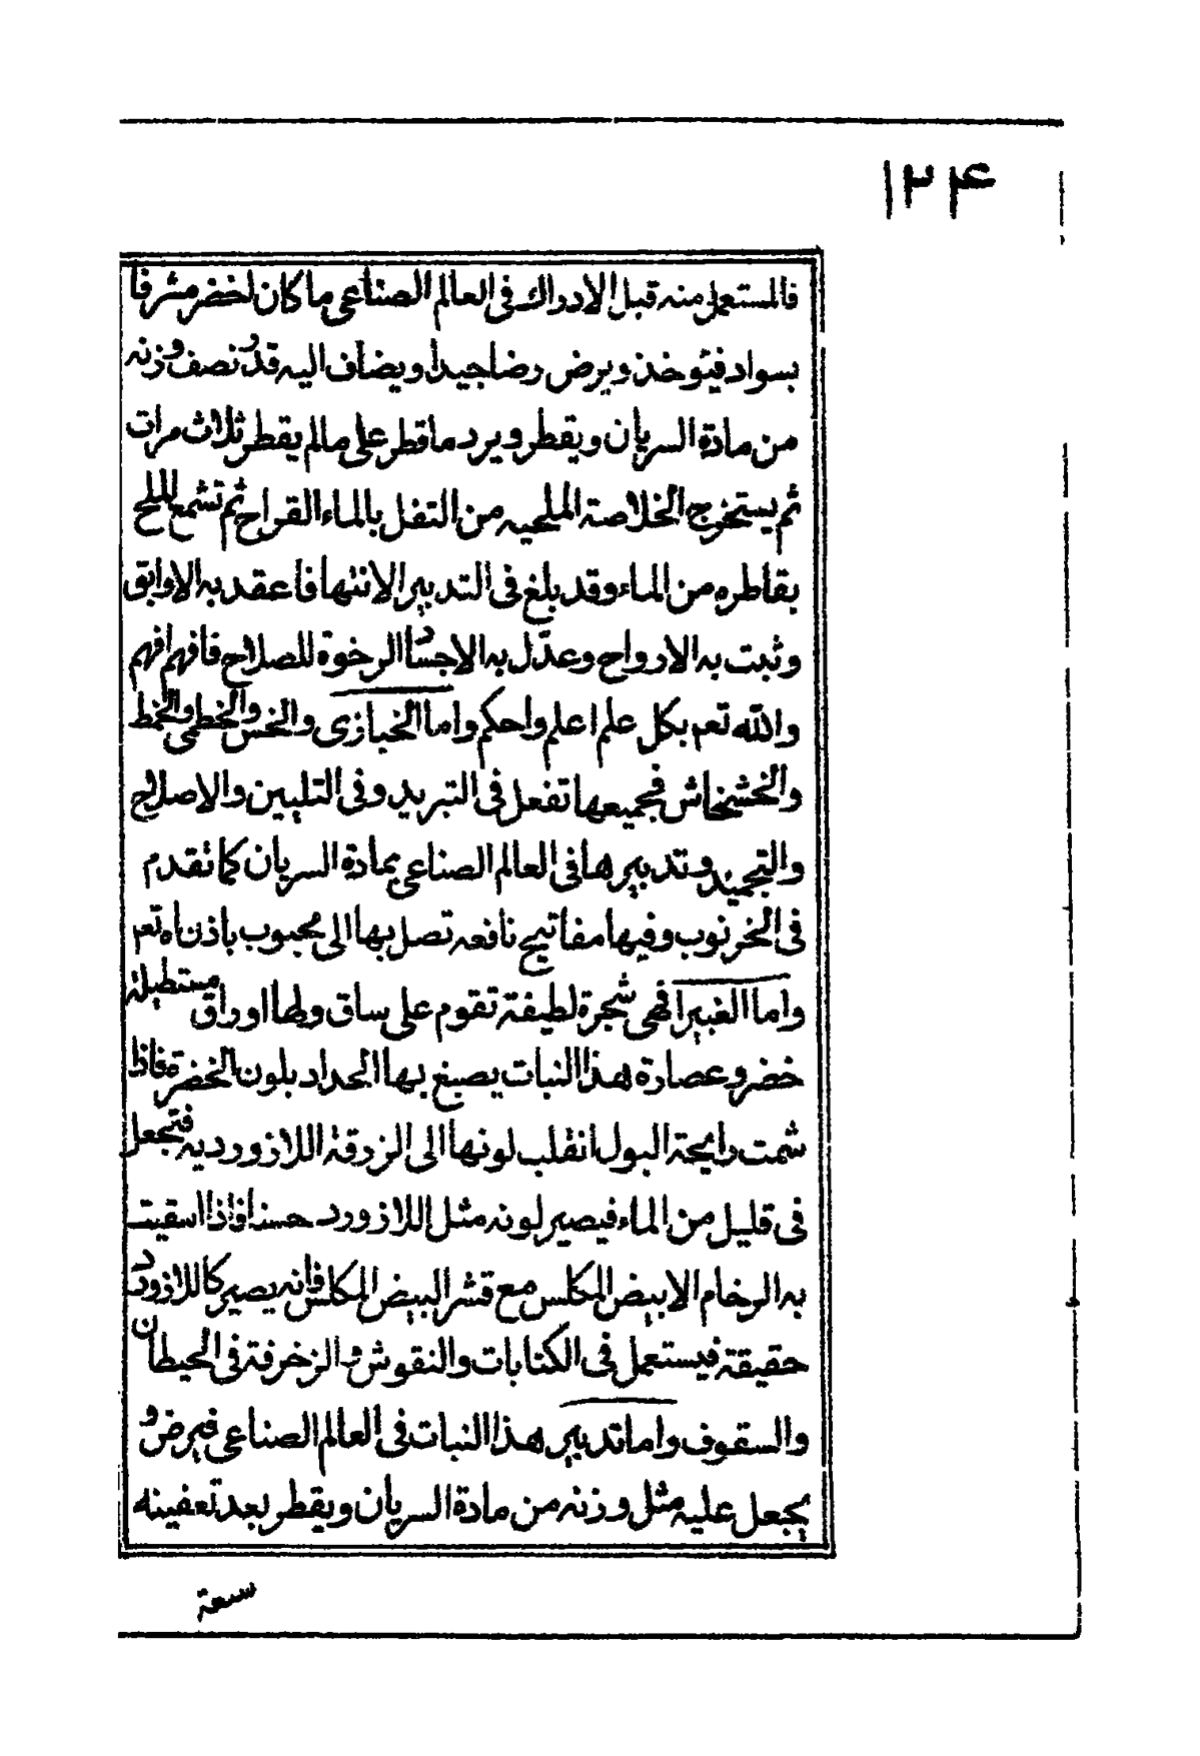 ۱۲۴
فالمستعمل منه قبل الادراك فى العالم الصناعى ما كان اخضر مشرفا
بسواد فيئوخذ ويرض رضا جيدا ويضاف اليه قدر نصف وزنه
من مادة السريان ويقطر ويرد ما قطر على مالم يقطر ثلاث مرات
ثم يستخرج الخلاصة الملحيه من التفل بالماء القراح ثم تشمع الملح
بقاطره من الماء وقد بلغ فى التدبير الانتها فاعقد به الاوابق
وثبت به الارواح وعدّل به الاجساد الرخوة للصلاح فافهم افهم
والله تعم بكل علم اعلم واحكم واما الخبازى والخس والخطمى والخمط
والخشخاش فجميعها تفعل فى التبريد وفى التليين والاصلاح
والتجميد وتدبيرها فى العالم الصناعى بمادة السريان كما تقدم
فى الخرنوب وفيها مفاتيح نافعه تصل بها الى محبوب باذن اه تعم
واما الغبيرا فهى شجرة لطيفة تقوم على ساق ولها اوراق مستطيلة
خضر وعصارة هذا النبات يصبغ بها الحداد بلون الخضرة فاذا
شمت رايحة البول انقلب لونها الى الزرقة اللازورديه فتجعل
فى قليل من الماء فيصير لونه مثل اللازورد حسنا فاذا اسقيت
به الرخام الابيض المكلس مع قشر البيض المكلس فانه يصير كاللازورد
حقيقة فيستعمل فى الكتابات والنقوش والزخرفة فى الحيطان
والسقوف واما تدبير هذا النبات فى العالم الصناعى فيرض و
يجعل عليه مثل وزنه من مادة السريان ويقطر بعد تعفينه
سبعة